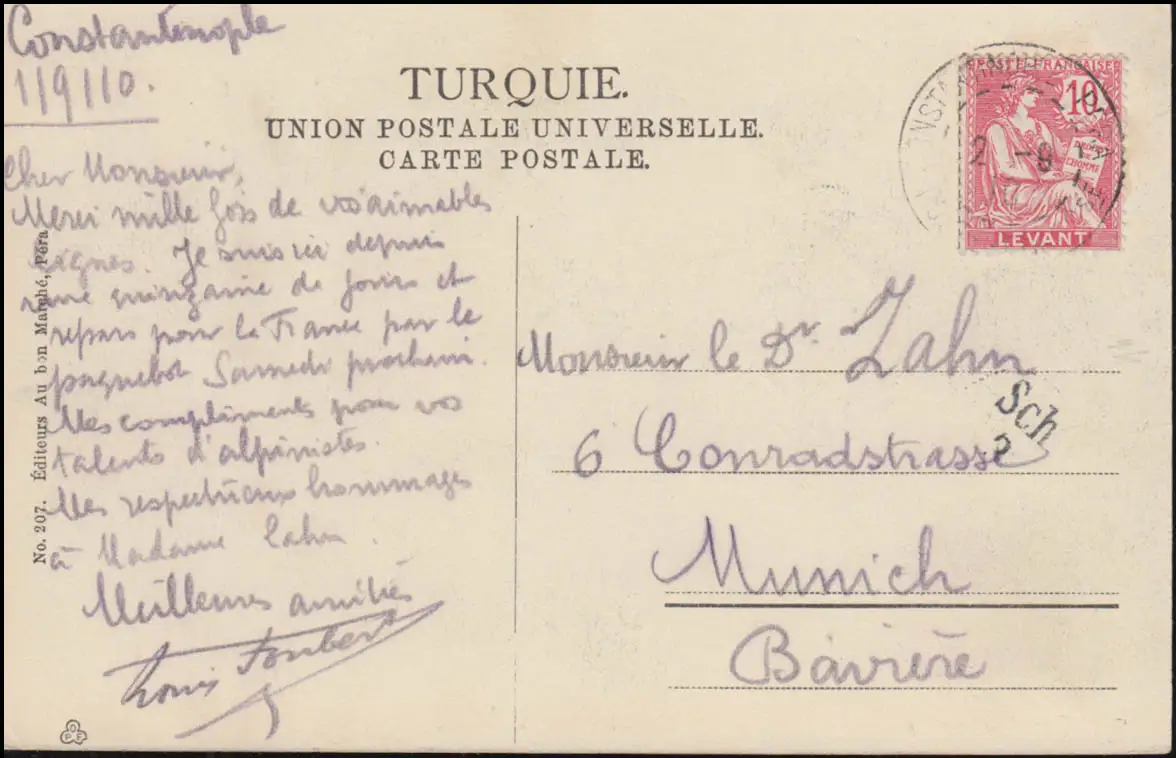 Constantinople
1/9/10.
TURQUIE.
UNION POSTALE UNIVERSELLE.
CARTE POSTALE.
Cher Monsieur,
Merci mille fois de vos aimables
lignes. Je suis ici depuis
une quinzaine de jours et
repars pour la France par le
paquebot Samedi prochain.
Mes compliments pour vos
talents d'alpinistes.
Mes respectueux hommages
à Madame Zahn.
Meilleures amitiés
Louis Joubert
No. 207. Éditeurs Au bon Marché, Péra
POSTE FRANÇAISE
10
DROITS
DE
L'HOMME
LEVANT
2 -9
Monsieur le Dr Zahn
Sch
6 Conradstrasse
Munich
Bavière